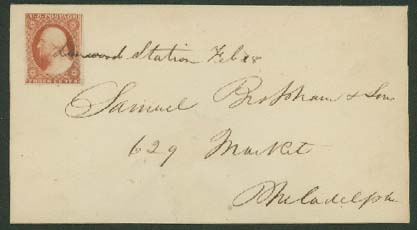 U.S. POSTAGE
THREE CENTS
Station Feb 28
Samuel & Son
629 Market
Philadelpha